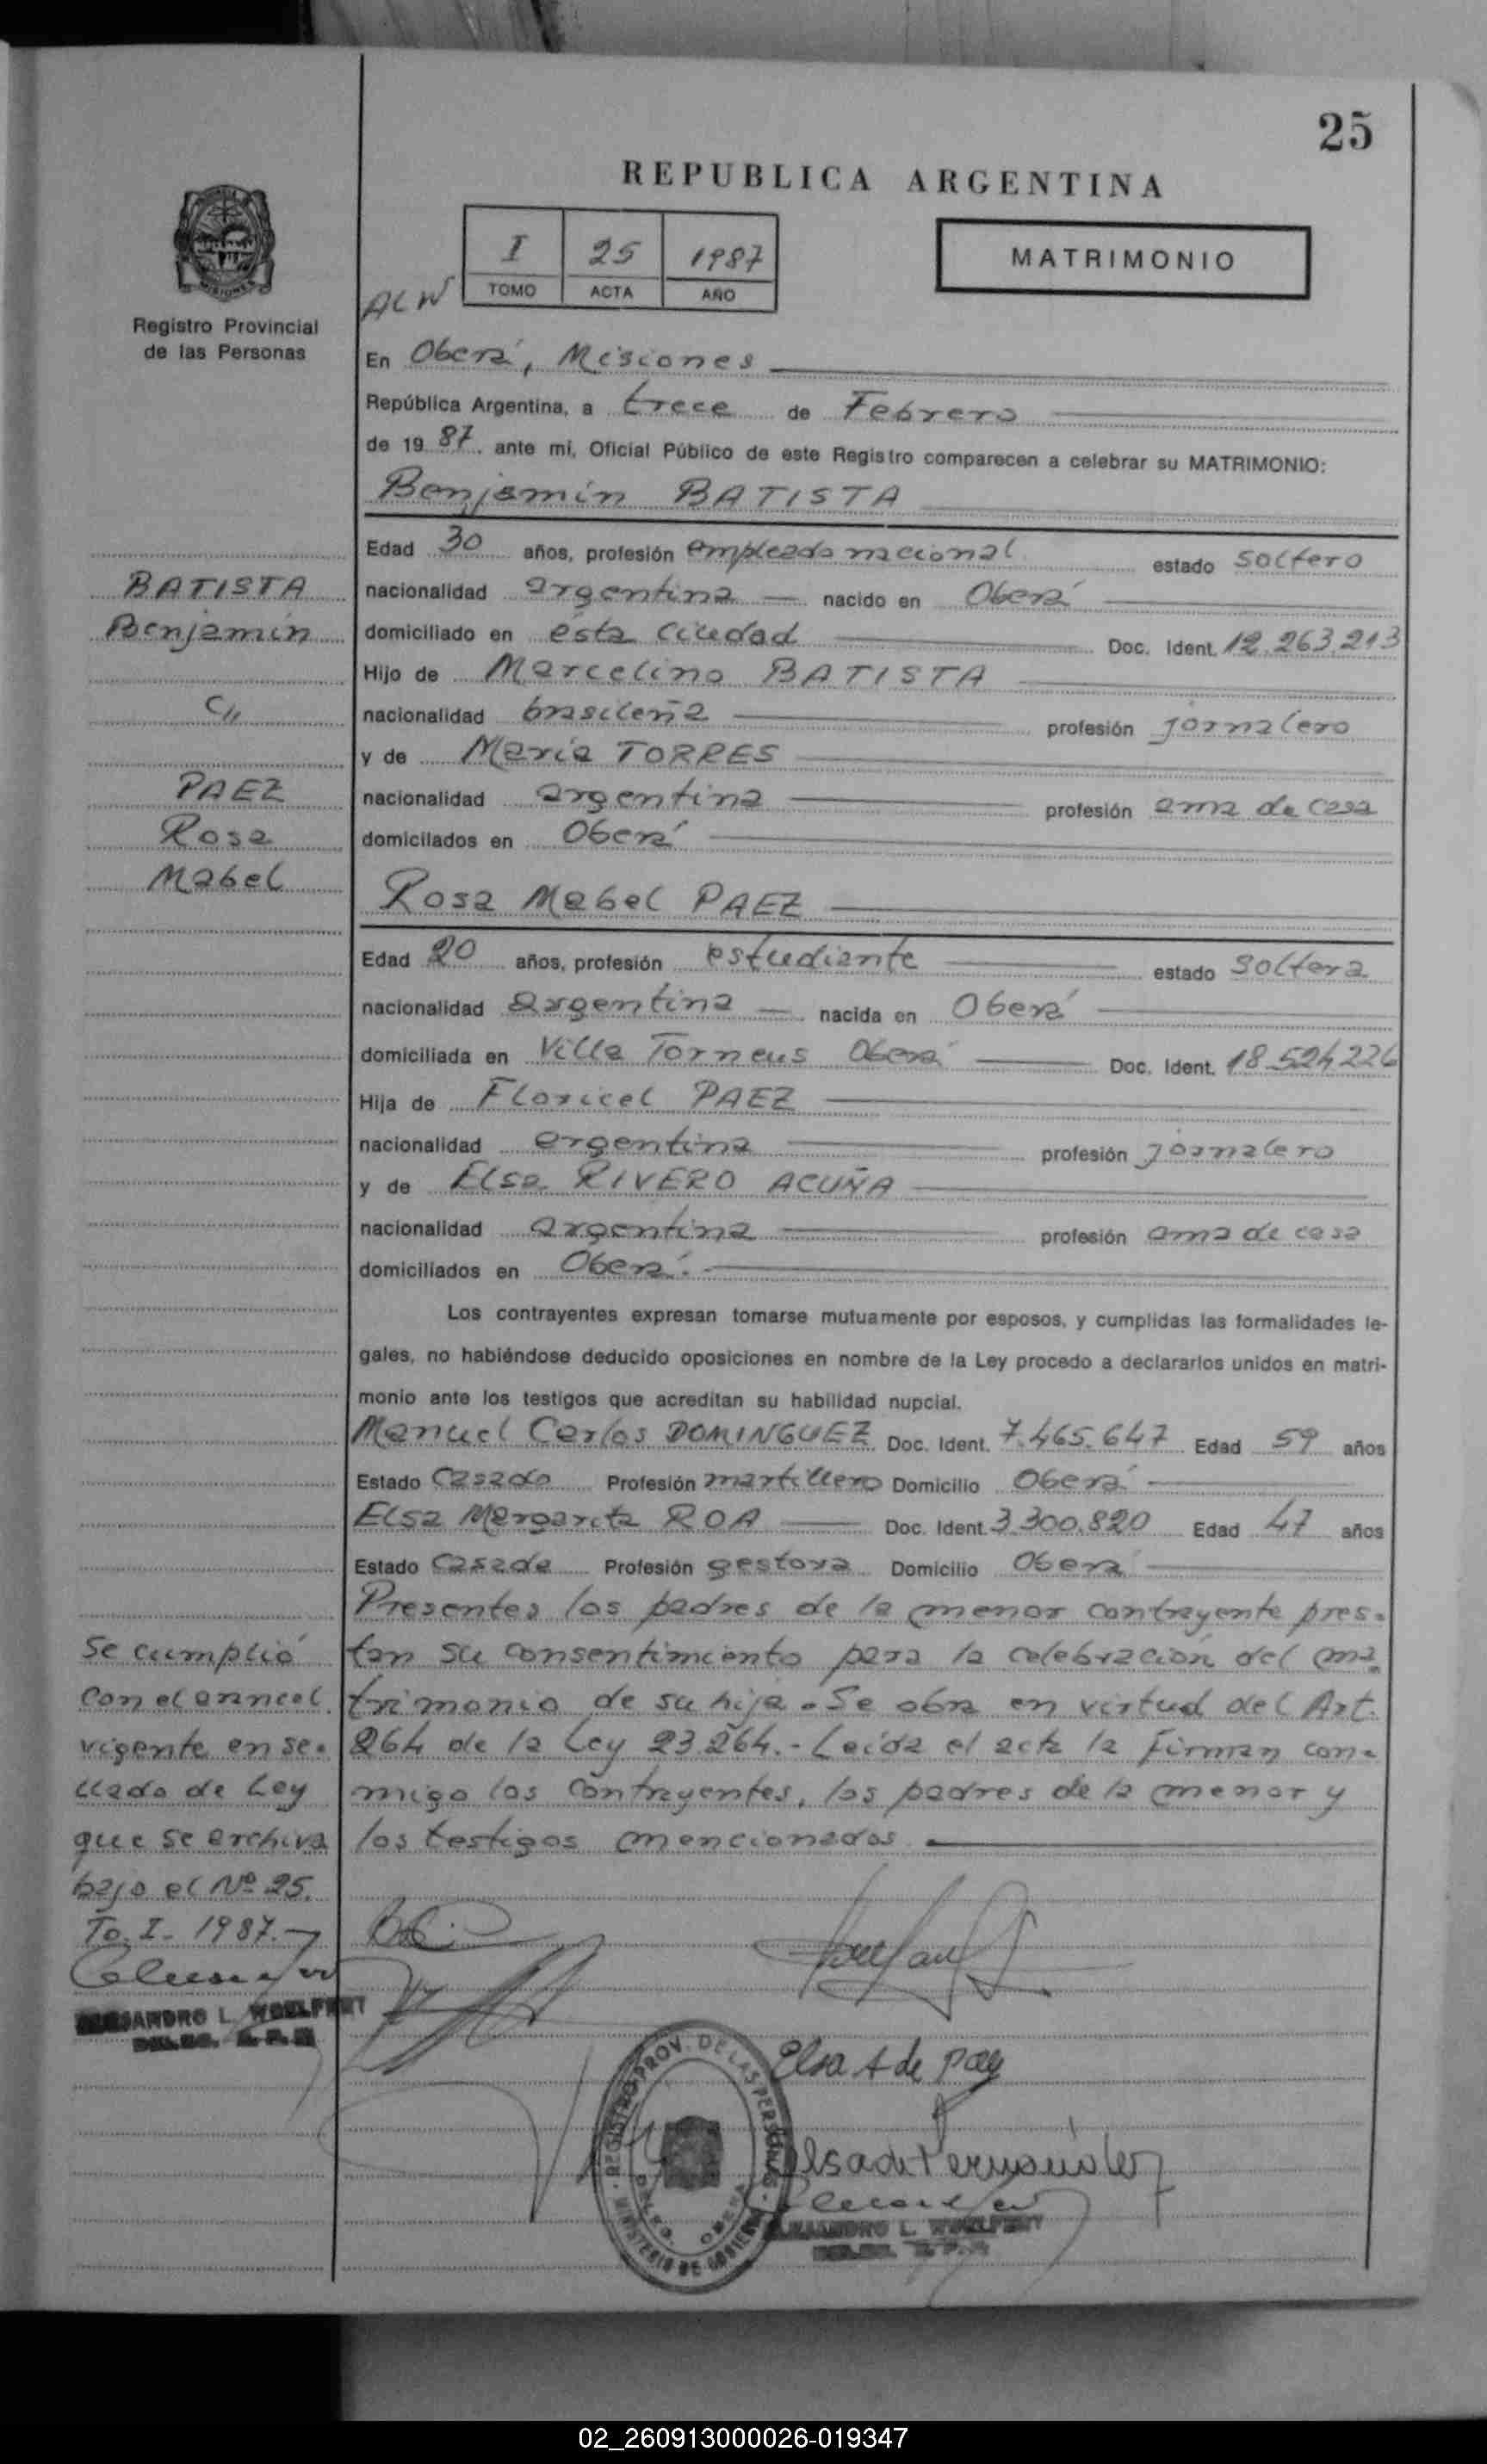 25
REPUBLICA ARGENTINA
I 25 1987
TOMO ACTA AÑO
MATRIMONIO
ALW
Registro Provincial
de las Personas
En Oberá, Misiones
República Argentina, a trece de Febrero
de 1987, ante mi, Oficial Público de este Registro comparecen a celebrar su MATRIMONIO:
Benjamín BATISTA
Edad 30 años, profesión empleado nacional estado soltero
BATISTA
nacionalidad argentina nacido en Oberá
Benjamín
domiciliado en ésta ciudad Doc. Ident. 12.263.213
Hijo de Marcelino BATISTA
C//
nacionalidad brasileña profesión jornalero
y de María TORRES
PAEZ
nacionalidad argentina profesión ama de casa
Rosa
domiciliados en Oberá
Mabel
Rosa Mabel PAEZ
Edad 20 años, profesión estudiante estado soltera
nacionalidad argentina nacida en Oberá
domiciliada en Villa Torneus Oberá Doc. Ident. 18.524226
Hija de Floricel PAEZ
nacionalidad argentina profesión jornalero
y de Elsa RIVERO ACUÑA
nacionalidad argentina profesión ama de casa
domiciliados en Oberá.
Los contrayentes expresan tomarse mutuamente por esposos, y cumplidas las formalidades le-
gales, no habiéndose deducido oposiciones en nombre de la Ley procedo a declararlos unidos en matri-
monio ante los testigos que acreditan su habilidad nupcial.
Manuel Carlos DOMINGUEZ Doc. Ident. 7.465.647 Edad 59 años
Estado Casado Profesión martillero Domicilio Oberá
Elsa Margarita ROA Doc. Ident. 3.300.820 Edad 47 años
Estado Casada Profesión gestora Domicilio Oberá
Presentes los padres de la menor contrayente pres-
tan su consentimiento para la celebración del ma-
trimonio de su hija.- Se obra en virtud del Art.
264 de la Ley 23.264.- Leída el acta la firman con-
migo los contrayentes, los padres de la menor y
los testigos mencionados.
Se cumplió
con el arancel
vigente en se-
llado de Ley
que se archiva
bajo el Nº 25.
To. I- 1987.-
ALEJANDRO L. WOELFERT
Elsa A de Paez
REGISTRO PROV. DE LAS PERSONAS - MINISTERIO DE GOBIERNO
OBERA
ALEJANDRO L. WOELFERT
02_260913000026-019347